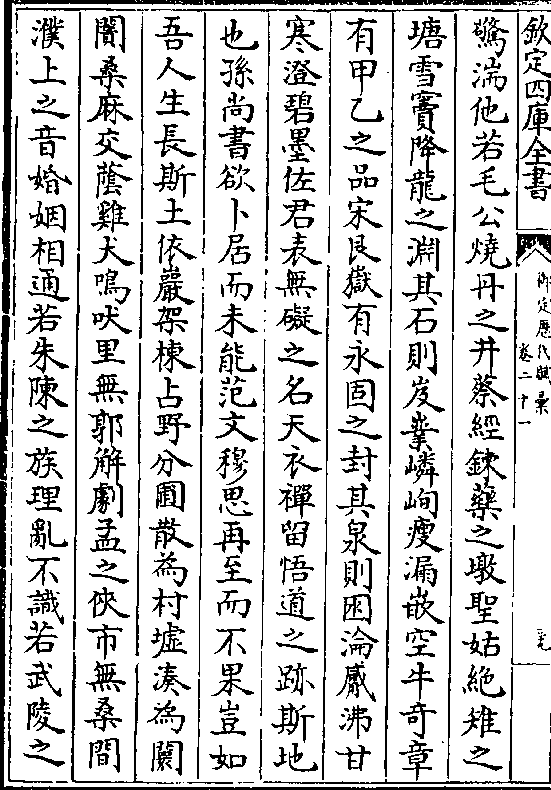 欽定四庫全書
御定歷代賦彙
卷二十一
驚湍他若毛公燒丹之井蔡經鍊藥之墩聖姑絶雉之
塘雪竇降龍之淵其石則岌嶪嶙峋瘦漏嵌空牛奇章
有甲乙之品宋艮嶽有永固之封其泉則囦淪觱沸甘
寒澄碧墨佐君表無礙之名天衣禪留悟道之跡斯地
也孫尚書欲卜居而未能范文穆思再至而不果豈如
吾人生長斯土依巖架棟占野分圃散為村墟湊為闤
闠桑麻交蔭雞犬鳴吠里無郭解劇孟之俠市無桑間
濮上之音婚姻相通若朱陳之族理亂不識若武陵之